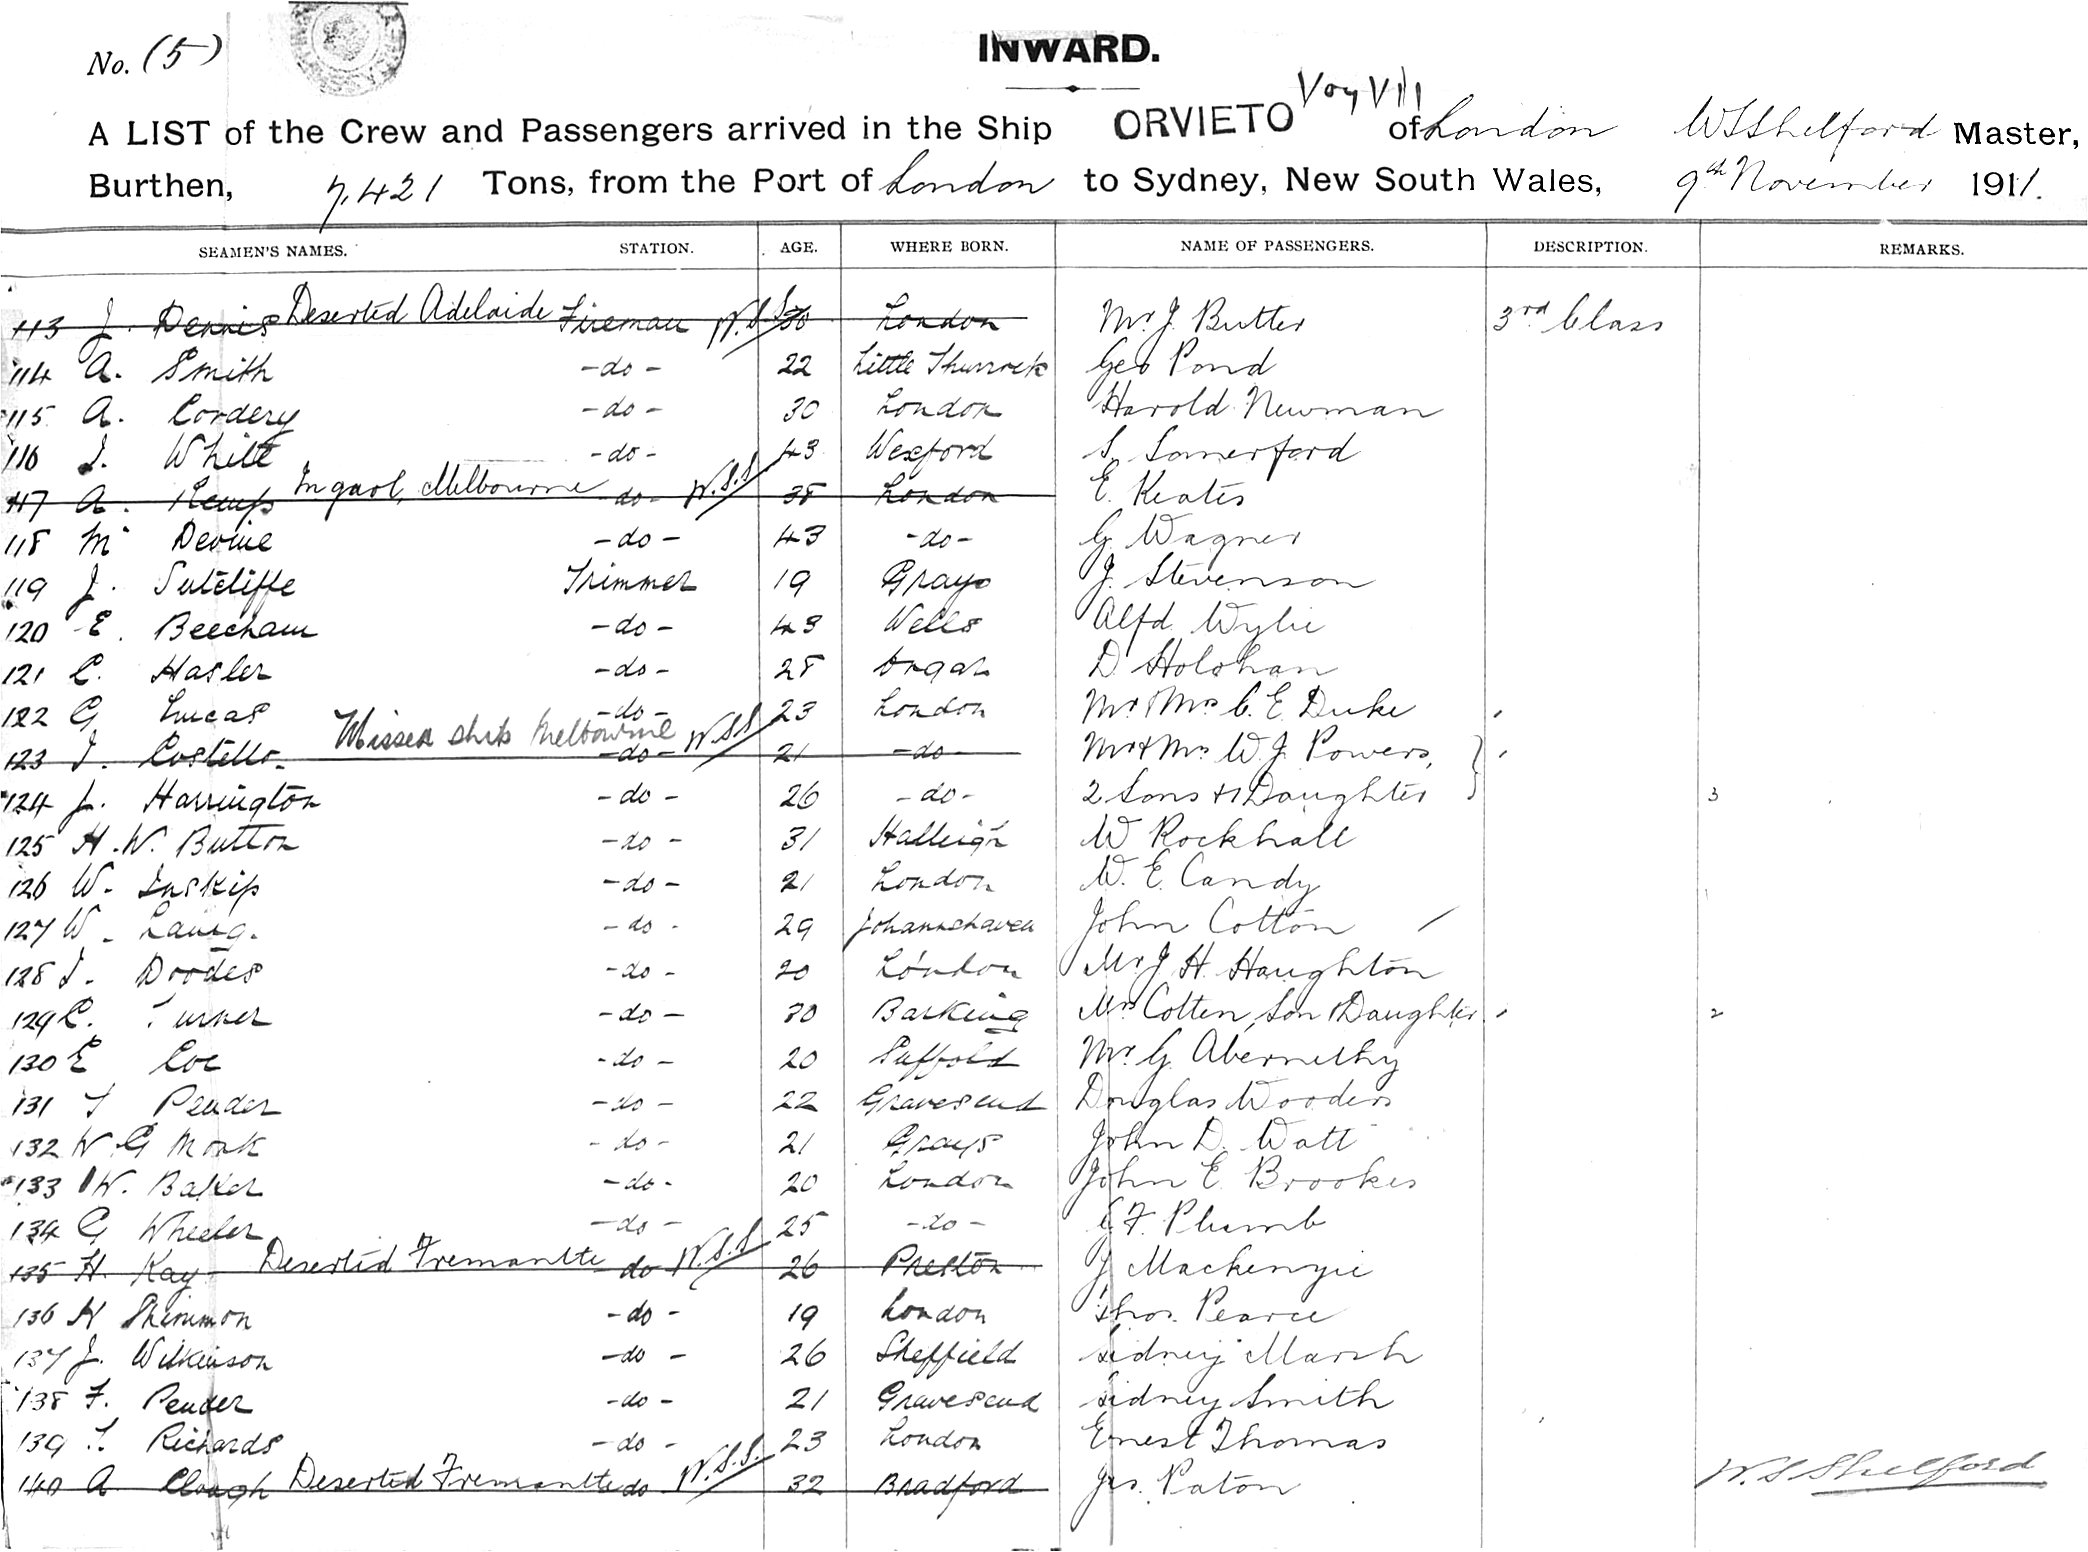 No. (5)
INWARD.
A LIST of the Crew and Passengers arrived in the Ship ORVIETO Voy VIII of London W S Shelford Master,
Burthen, 7,421 Tons, from the Port of London to Sydney, New South Wales, 9th November 1911.
SEAMEN'S NAMES. STATION. AGE. WHERE BORN. NAME OF PASSENGERS. DESCRIPTION. REMARKS.
113 J. Dennis Deserted Adelaide Fireman W.S.S. 30 London Mr J. Butter 3rd Class
114 A. Smith - do - 22 Little Thurrock Geo Pond
115 A. Cordery - do - 30 London Harold Newman
116 J. White - do - 43 Wexford S. Somerford
117 A. Kemp In gaol, Melbourne do - W.S.S 38 London E. Keates
118 M Devine - do - 43 - do - G. Wagner
119 J. Sutcliffe Trimmer 19 Grays J. Stevenson
120 E. Beecham - do - 43 Wells Alfd. Wylie
121 C. Hasler - do - 28 Ongar D. Holohan
122 G Lucas - do - 23 London Mr & Mrs C. E. Duke
123 J. Costello Missed ship Melbourne - do - W.S.S 21 - do - Mr & Mrs W. J. Powers,
124 J. Harrington - do - 26 - do - 2 Sons & 1 Daughter 3
125 H. W. Button - do - 31 Halleigh W Rockhall
126 W. Inskip - do - 21 London W. E. Candy
127 W. Laing. - do - 29 Johannshaven John Cotton
128 J. Doodes - do - 20 London Mr J H. Haughton
129 C. Turner - do - 30 Barking Mrs Cotten, Son & Daughter 2
130 E Coe - do - 20 Suffold Mr G. Abernethy
131 T Pender - do - 22 Gravesend Douglas Wooders
132 W G Monk - do - 21 Grays John D. Watt
133 W. Baker - do - 20 London John E. Brookes
134 G Wheeler - do - 25 - do - F. Plumb
135 H. Kay Deserted Fremantle do W.S.S 26 Preston J Mackenzie
136 H Shrimmon - do - 19 London Thos. Pearce
137 J. Wilkinson - do - 26 Sheffield Sidney Marsh
138 F. Pender - do - 21 Gravesend Sidney Smith
139 T. Richards - do - 23 London Ernest Thomas
140 A Clough Deserted Fremantle do W.S.S. 32 Bradford Jas. Paton
W. S Shelford